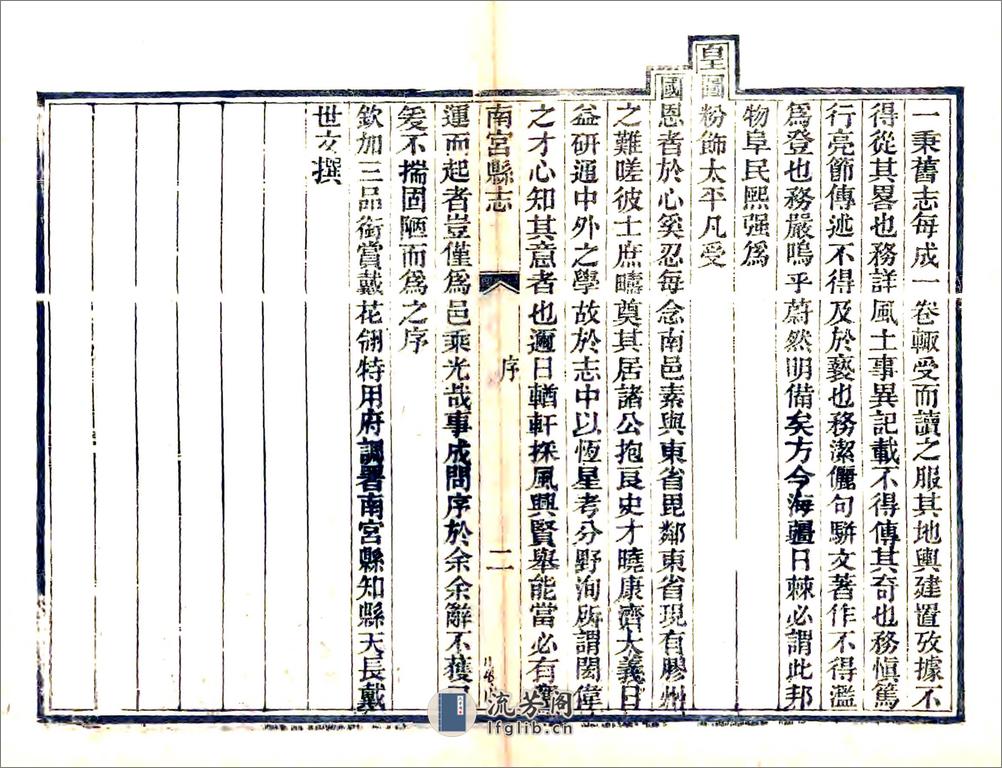 一秉舊志每成一卷輙受而讀之服其地輿建置攷據不
得從其畧也務詳風土事異記載不得傳其奇也務愼篤
行亮節傳述不得及於褻也務潔儷句駢文著作不得濫
爲登也務嚴嗚乎蔚然明備矣方今海疆日棘必謂此邦
物阜民熙强爲
皇圖
粉飾太平凡受
國
恩者於心奚忍每念南邑素與東省毘鄰東省現有膠州
之難嗟彼士庶疇奠其居諸公抱良史才曉康濟大義日
益研通中外之學故於志中以恆星考分野洵所謂閎偉
之才心知其意者也邇日輶軒採風興賢舉能當必有
南宮縣志
序
二
運而起者豈僅爲邑乘光哉事成問序於余余辭不獲已
爰不揣固陋而爲之序
欽加三品銜賞戴花翎特用府調署南宮縣知縣天長戴
世文撰
流芳阁
lfglib.cn